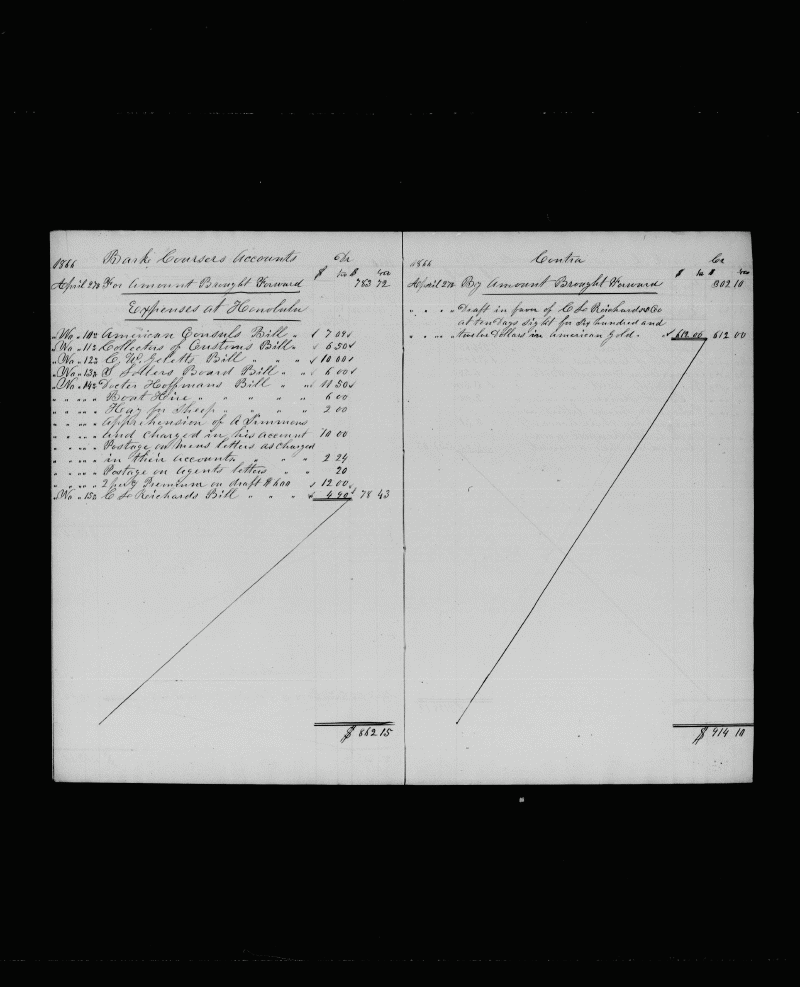 1866 Bark Coursers Accounts Dr
$ $
April 27th For Amount Brought Forward 783 72
Expenses at Honolulu
" No " 10 " American Consuls Bill " $ 7 09
" No " 11 " Collectors of Customs Bill " $ 6 50
" No " 12 " C. W. Bill " " " $ 10 00
" No " 13 " Board Bill " " $ 6 00
" No " 14 " Doctor Hoffmans Bill " " $ 11 50
" " " " " Boat Hire " " " " " 6 00
" " " " " Hay for Sheep " " " " 2 00
" " " " " Apprehension of A Simmons
" " " " " and charged in his account 10 00
" " " " " Postage on mens letters as charged
" " " " " in their accounts " " " 2 24
" " " " " Postage on agents letters " " 20
" " " " " 2 Premium on draft $ 600 $ 12 00
" No " 15 " Richards Bill " " " $ 4 90 78 43
$ 862 15
1866 Contra Cr
$ $
April 27th By Amount Brought Forward 302 10
" " " " Draft in favor of Richards & Co
at ten Days sight for Six hundred and
" " " " twelve Dollars in American Gold. $ 612 00 612 00
$ 914 10